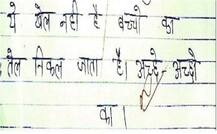 ये खेल नहीं है बच्चो का
तेल निकल जाता है। अच्छे अच्छो
का।